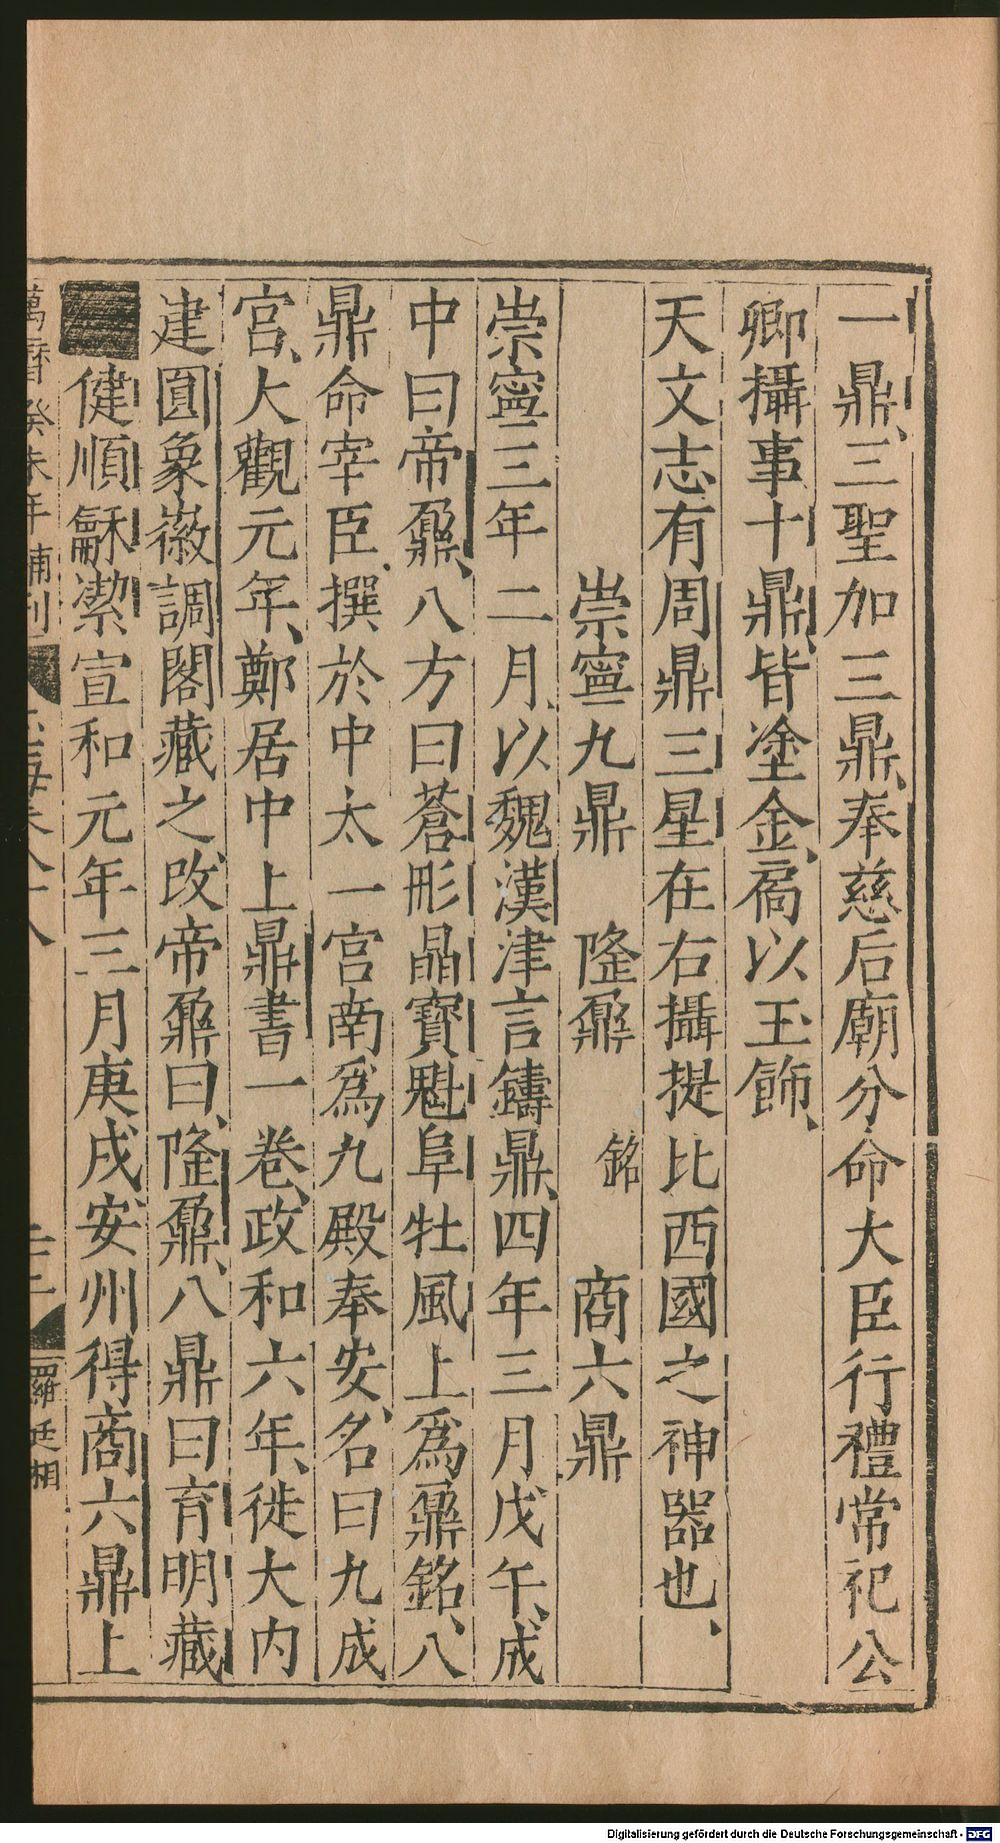 一鼎、三聖加三鼎、奉慈后廟分命大臣行禮常祀公
卿攝事十鼎、皆塗金、扃以玉飾、
天文志有周鼎三星在右攝提比西國之神器也、
崇寧九鼎 隆鼐 銘 商六鼎
崇寧三年二月、以魏漢津言鑄鼎、四年三月戊午、成
中曰帝鼐、八方曰蒼彤晶寶魁阜牡風上為鼐銘、八
鼎命宰臣撰於中太一宮南為九殿奉安、名曰九成
宮、大觀元年、鄭居中上鼎書一卷、政和六年、徙大內
建圓象徽調閣藏之、改帝鼐曰、隆鼐、八鼎曰育明藏
健順龢潔宣和元年三月庚戌、安州得商六鼎上
萬曆癸未年補刊
玉海卷八十八
羅廷相
Digitalisierung gefördert durch die Deutsche Forschungsgemeinschaft - DFG